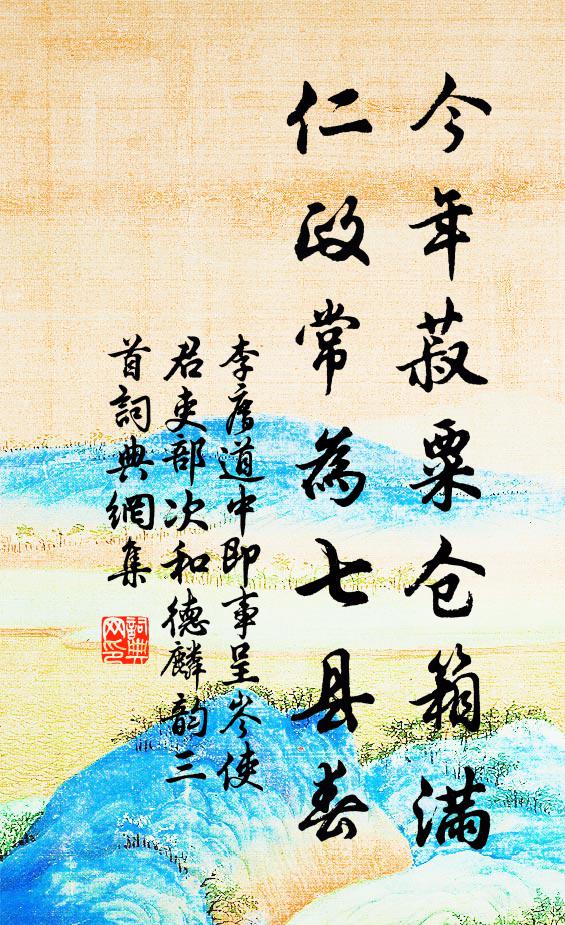 今年菽粟仓箱满
仁政常為七县春
李廌道中即事呈岑使
君吏部次和德麟韵三
首詞典網集
詞典网印